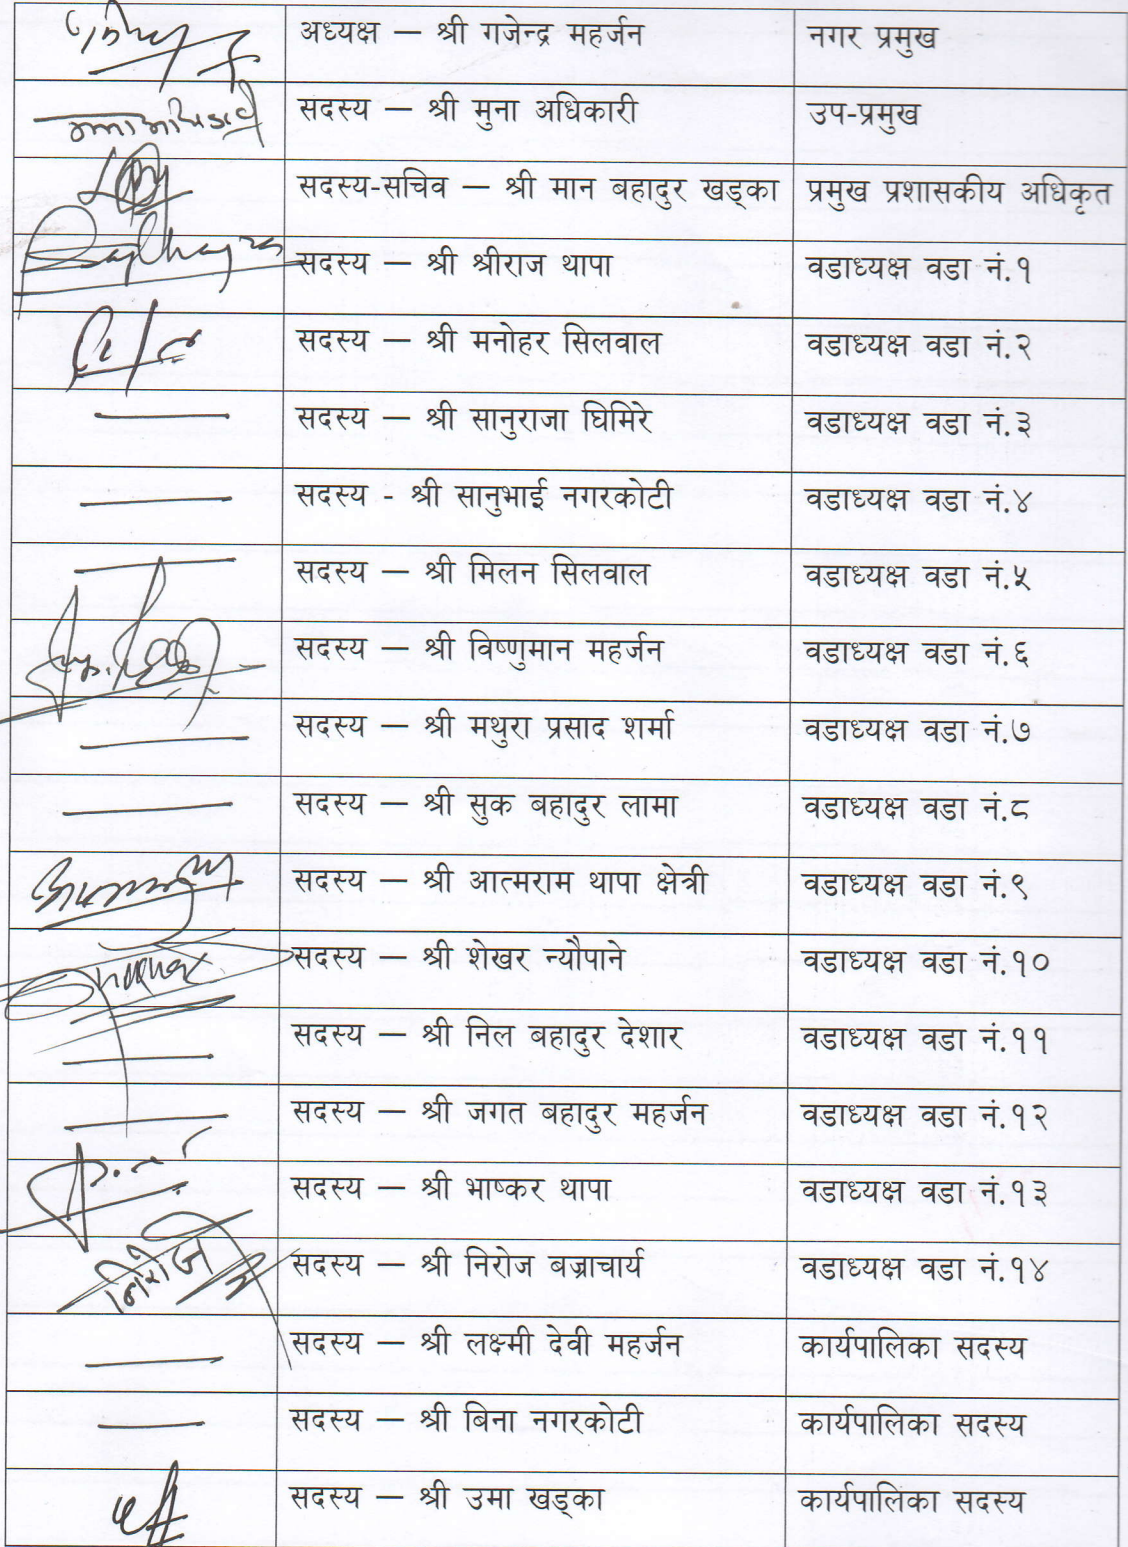 अध्यक्ष — श्री गजेन्द्र महर्जन नगर प्रमुख
सदस्य — श्री मुना अधिकारी उप-प्रमुख
सदस्य-सचिव — श्री मान बहादुर खड्का प्रमुख प्रशासकीय अधिकृत
सदस्य — श्री श्रीराज थापा वडाध्यक्ष वडा नं.१
सदस्य — श्री मनोहर सिलवाल वडाध्यक्ष वडा नं.२
सदस्य — श्री सानुराजा घिमिरे वडाध्यक्ष वडा नं.३
सदस्य - श्री सानुभाई नगरकोटी वडाध्यक्ष वडा नं.४
सदस्य — श्री मिलन सिलवाल वडाध्यक्ष वडा नं.५
सदस्य — श्री विष्णुमान महर्जन वडाध्यक्ष वडा नं.६
सदस्य — श्री मथुरा प्रसाद शर्मा वडाध्यक्ष वडा नं.७
सदस्य — श्री सुक बहादुर लामा वडाध्यक्ष वडा नं.८
सदस्य — श्री आत्मराम थापा क्षेत्री वडाध्यक्ष वडा नं.९
सदस्य — श्री शेखर न्यौपाने वडाध्यक्ष वडा नं.१०
सदस्य — श्री निल बहादुर देशार वडाध्यक्ष वडा नं.११
सदस्य — श्री जगत बहादुर महर्जन वडाध्यक्ष वडा नं.१२
सदस्य — श्री भाष्कर थापा वडाध्यक्ष वडा नं.१३
निरोज सदस्य — श्री निरोज बज्राचार्य वडाध्यक्ष वडा नं.१४
सदस्य — श्री लक्ष्मी देवी महर्जन कार्यपालिका सदस्य
सदस्य — श्री बिना नगरकोटी कार्यपालिका सदस्य
सदस्य — श्री उमा खड्का कार्यपालिका सदस्य